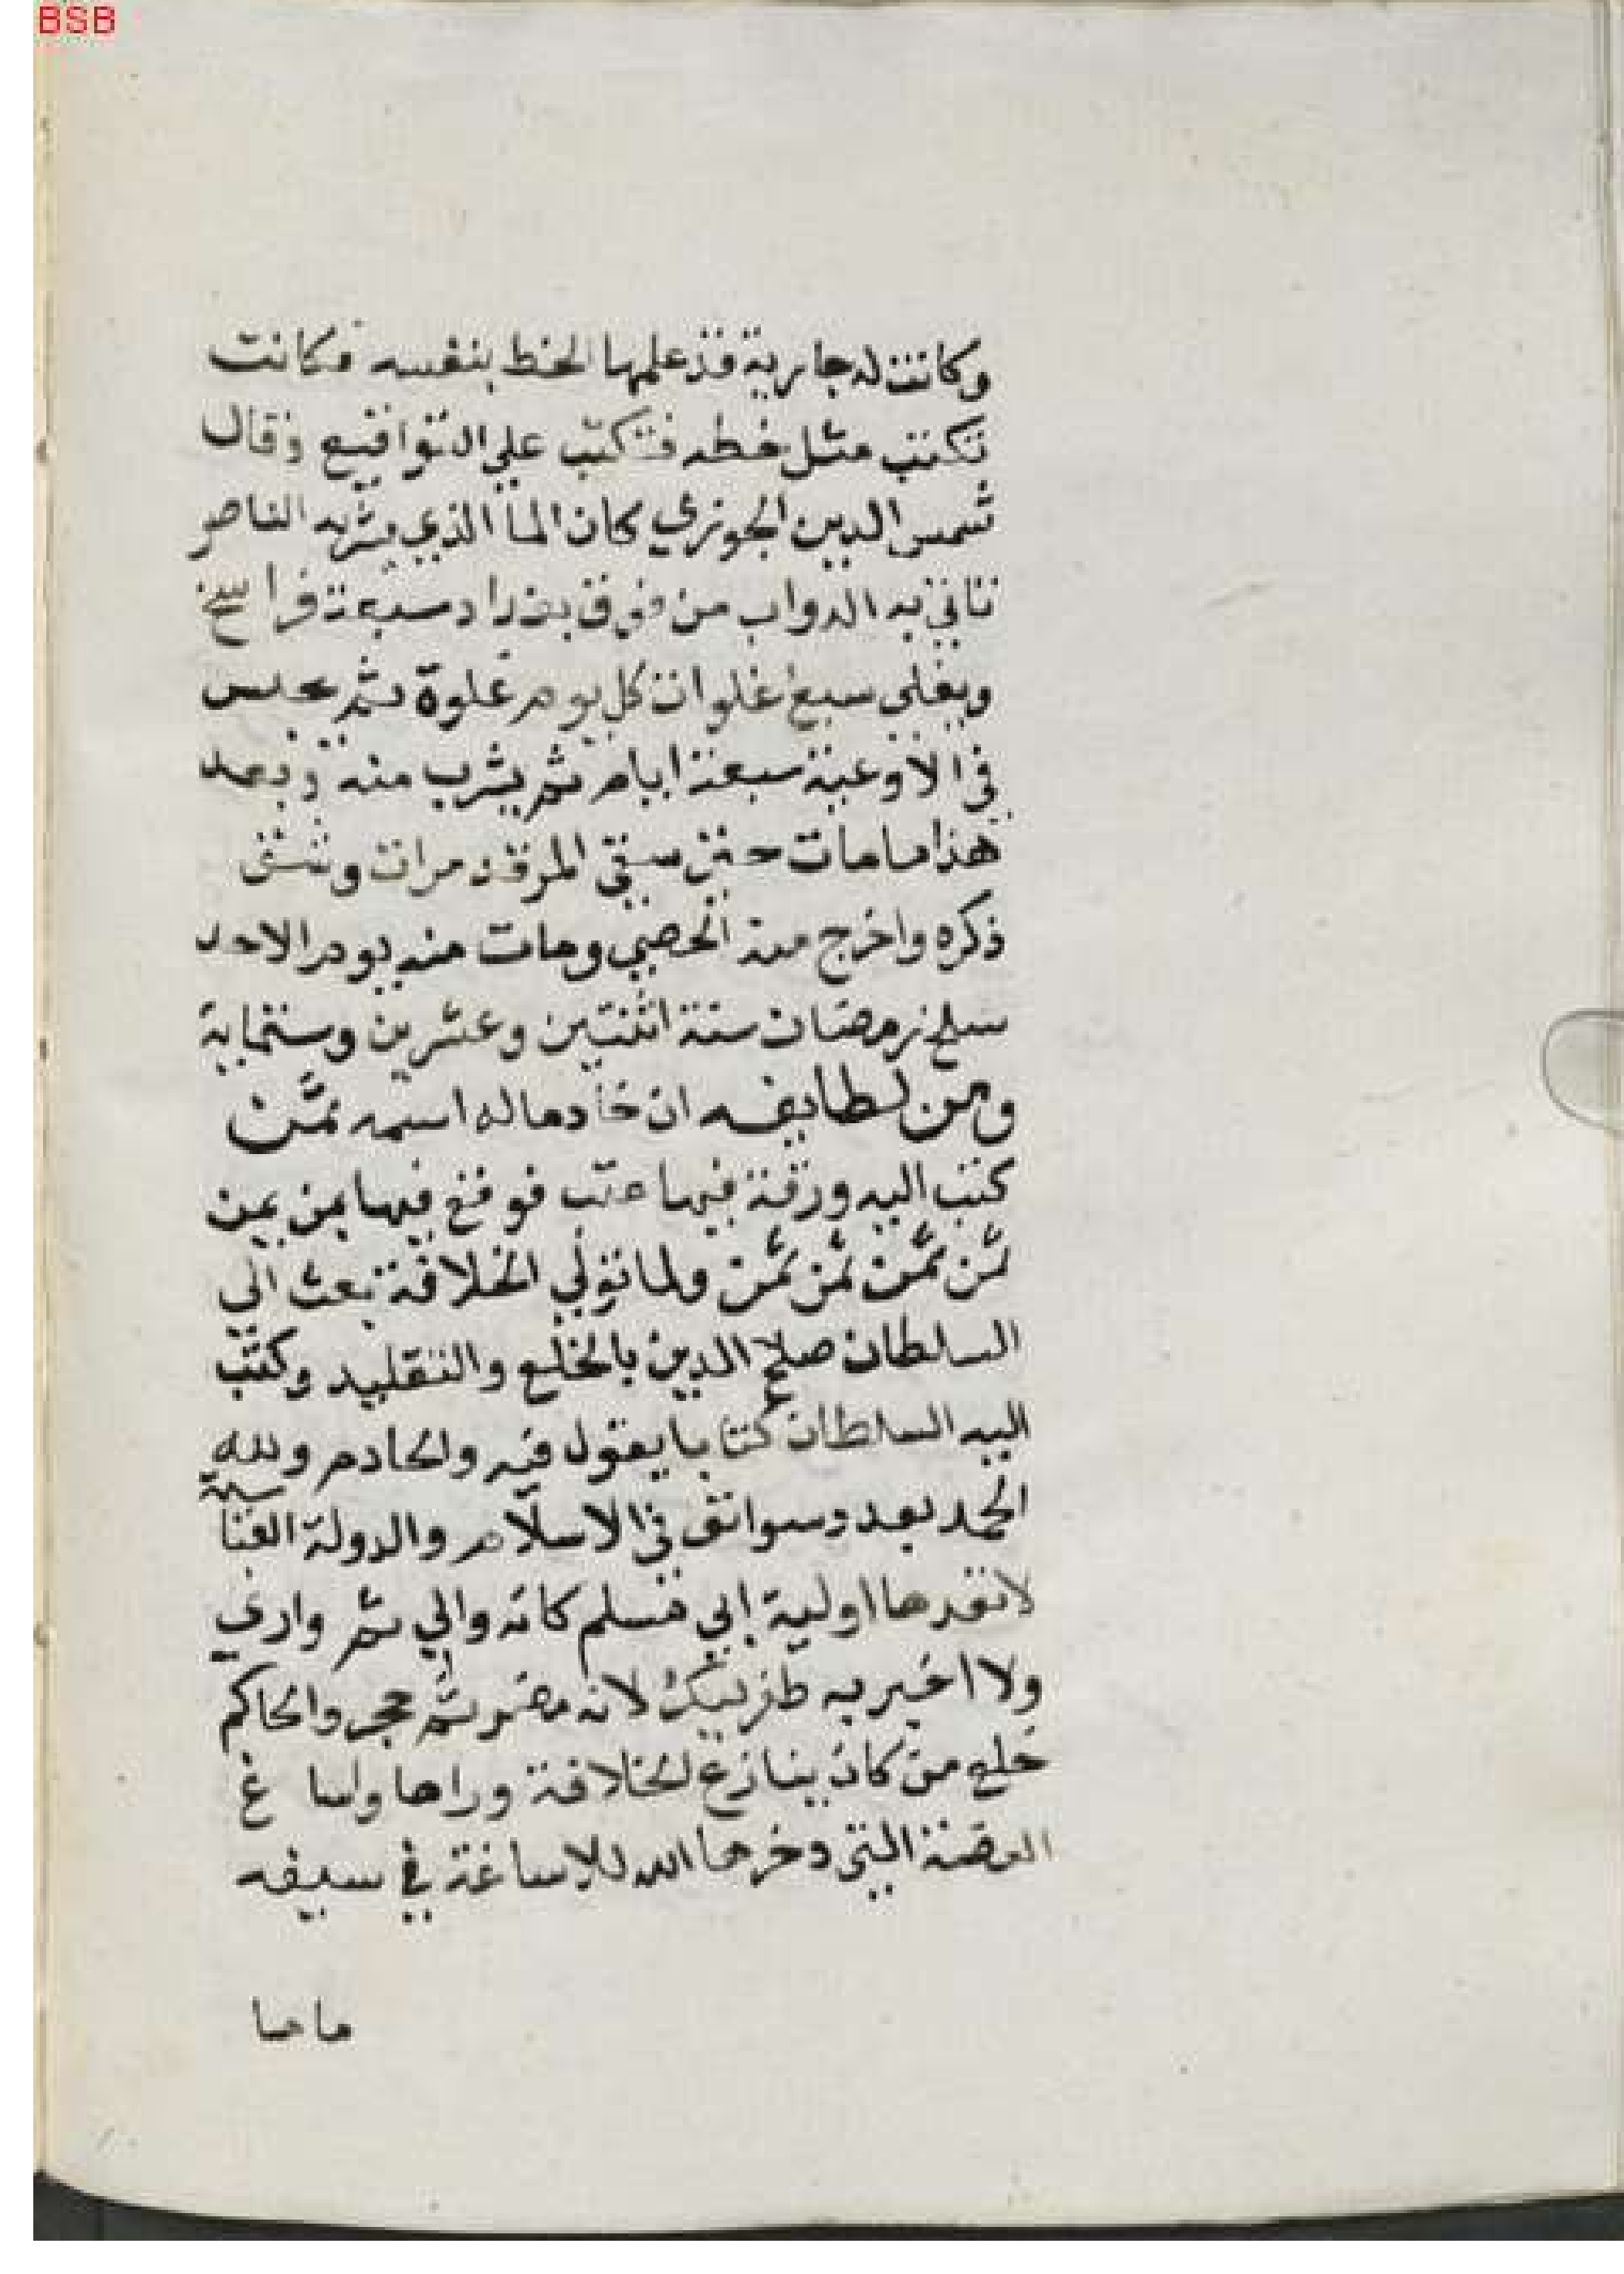 BSB
وكانت له جارية قد علمها الخط بنفسه فكانت
تكتب مثل خطه فتكتب على التواقيع وقال
شمس الدين الجوزي كان الما الذي يشربه الناصر
تاتي به الدواب من فوق بغداد سبعة فراسخ
ويغلي سبع غلوات كل يوم غلوة ثم يحبس
في الاوعية سبعة ايام ثم يشرب منه وبعد
هذا ما مات حتى سقي المرقد مرات وشق
ذكره واخرج منه الحصي ومات منه يوم الاحد
سلخ رمضان سنة اثنتين وعشرين وستماية
ومن لطايفه ان خادما له اسمه يمن
كتب اليه ورقة فيها عتب فوقع فيها بمن يمن
يمن ثمن يمن ثمن ولما تولي الخلافة بعث الي
السلطان صلاح الدين بالخلع والتقليد وكتب
اليه السلطان كتابا يقول فيه والخادم ولله
الحمد يعدد سوابق في الاسلام والدولة العباسية
لا تعدها اولية ابي مسلم لانه والي ثم واري
ولا اخيرية طغرلبك لانه نصر ثم حجر والحاكم
خلع من كان ينازع الخلافة وراها واساغ
الغصة التي دخرها الله للاساغة في سيفه
ماها